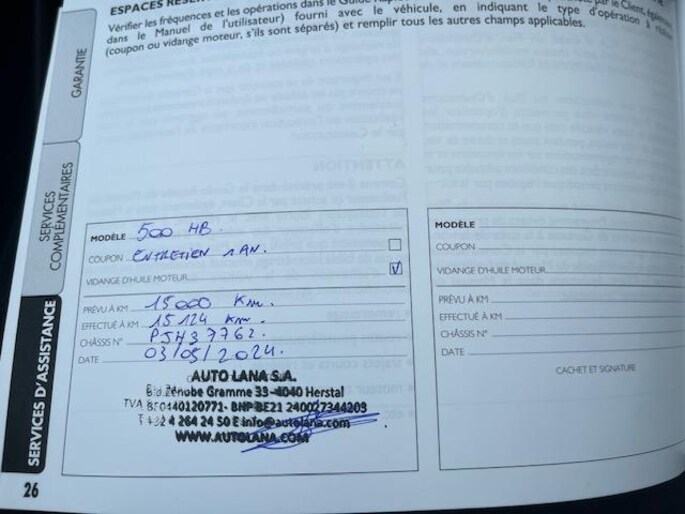 ESPACES
Vérifier les fréquences et les opérations dans le
dans le Manuel de l'utilisateur) fourni avec le véhicule, en indiquant le type d'opération à
(coupon ou vidange moteur, s'ils sont séparés) et remplir tous les autres champs applicables.
GARANTIE
SERVICES
COMPLÉMENTAIRES
SERVICES D'ASSISTANCE
MODÈLE 500 HB.
COUPON ENTRETIEN 1 AN.
VIDANGE D'HUILE MOTEUR
PRÉVU À KM 15000 Km.
EFFECTUÉ À KM 15124 Km.
CHÂSSIS N° PJH37762.
DATE 03/05/2024.
AUTO LANA S.A.
Bld.Zénobe Gramme 33-4040 Herstal
TVA BE0440120771- BNP BE21 240027344203
T +32 4 264 24 50 E info@autolana.com
WWW.AUTOLANA.COM
MODÈLE
COUPON
VIDANGE D'HUILE MOTEUR
PRÉVU À KM
EFFECTUÉ À KM
CHÂSSIS N°
DATE
CACHET ET SIGNATURE
ATTENTION
26